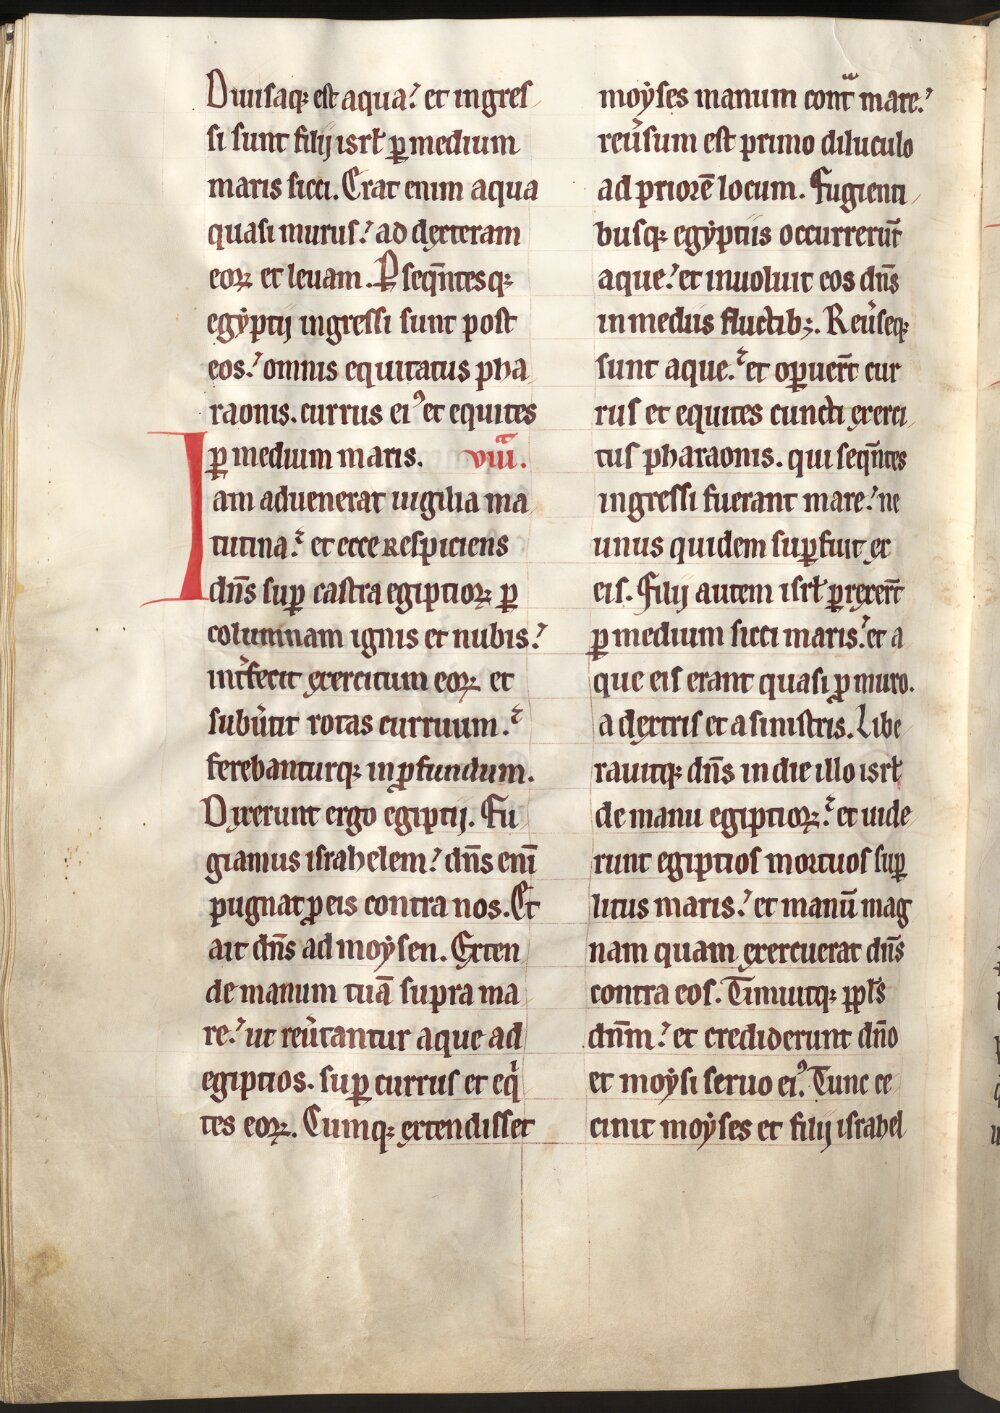 Diuisaq; est aqua. et ingres
si sunt filij isrł ꝑ medium
maris sicci. Erat enim aqua
quasi murus. ad dexteram
eoꝝ et leuam. Ꝑseqn̄tesq;
egyptij ingressi sunt post
eos. omnis equitatus pha
raonis. currus eiꝰ et equites
ꝑ medium maris. viiii.
Iam aduenerat uigilia ma
tutina. et ecce respiciens
dn̄s suꝑ castra egiptioꝝ ꝑ
columnam ignis et nubis.
int̓fecit exercitum eoꝝ et
subu̓tit rotas curruum.
ferebanturq; in ꝓfundum.
Dixerunt ergo egiptij. Fu
giamus israhelem. dn̄s eni̅
pugnat ꝓ eis contra nos. Et
ait dn̄s ad moysen. Exten
de manum tuā supra ma
re. ut reu̓tantur aque ad
egiptios. suꝑ currus et eqͥ
tes eoꝝ. Cumq; extendisset
moyses manum contͣ mare.
reu̓sum est primo diluculo
ad priorē locum. Fugienti
busq; egyptiis occurrerūt
aque. et inuoluit eos dn̄s
in mediis fluctib;. Reu̓seq;
sunt aque. et oꝑuer̄t cur
rus et equites cuncti exerci
tus pharaonis. qui seqn̄tes
ingressi fuerant mare. ne
unus quidem suꝑfuit ex
eis. Filij autem isrł ꝑrexer̄t
ꝑ medium sicci maris. et a
que eis erant quasi ꝓ muro.
a dextris et a sinistris. Libe
rauitq; dn̄s in die illo isrł
de manu egiptioꝝ. et uide
runt egiptios mortuos suꝑ
litus maris. et manū mag
nam quam exercuerat dn̄s
contra eos. Timuitq; ppłs
dn̄m. et crediderunt dn̄o
et moysi seruo eiꝰ. Tunc ce
cinit moyses et filij israhel